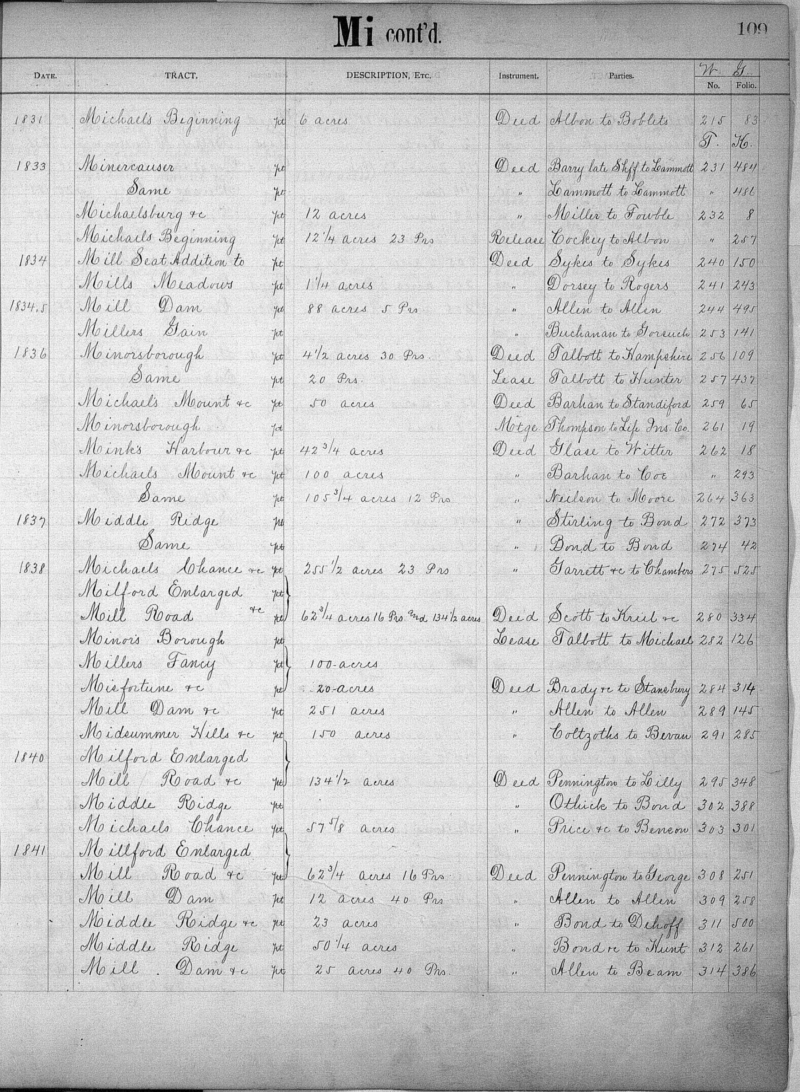 Mi cont'd.
109
DATE. TRACT. DESCRIPTION, ETC. Instrument. Parties. W. G.
No. Folio.
1831 Michaels Beginning pt 6 acres Deed Albon to Boblets 215 83
T. K.
1833 Minercauser pt Deed Barry late Shff to Lammott 231 484
Same pt " Lammott to Lammott " 486
Michaelsburg &c pt 12 acres " Miller to Fowble 232 8
Michaels Beginning pt 12 1/4 acres 23 Prs Release Cockey to Albon " 257
1834 Mill Seat Addition to pt Deed Sykes to Sykes 240 150
Mills Meadows pt 1 1/4 acres " Dorsey to Rogers 241 243
1834.5 Mill Dam pt 88 acres 5 Prs " Allen to Allen 244 495
Millers Gain pt " Buchanan to Gorsuch 253 141
1836 Minorsborough pt 4 1/2 acres 30 Prs. Deed Talbott to Hampshire 256 109
Same pt 20 Prs. Lease Talbott to Hunter 257 437
Michael's Mount &c pt 50 acres Deed Barhan to Standiford 259 65
Minorsborough pt Mtge Thompson to Life Ins. Co. 261 19
Mink's Harbour &c pt 42 3/4 acres Deed Glase to Witter 262 18
Michaels Mount &c pt 100 acres " Barhan to Coe " 293
Same pt 105 3/4 acres 12 Prs " Neilson to Moore 264 363
1837 Middle Ridge pt " Stirling to Bond 272 373
Same pt " Bond to Bond 274 42
1838 Michaels Chance &c pt 255 1/2 acres 23 Prs " Garrett &c to Chambers 275 525
Milford Enlarged
Mill Road &c pt 62 3/4 acres 16 Prs. And 134 1/2 acres Deed Scott to Kreil &c 280 334
Minors Borough pt Lease Talbott to Michael 282 126
Millers Fancy pt 100 acres
Misfortune &c pt 20 acres Deed Brady &c to Stansbury 284 314
Mill Dam &c pt 251 acres " Allen to Allen 289 145
Midsummer Hills &c pt 150 acres " Coltzoths to Bevan 291 285
1840 Milford Enlarged
Mill Road &c pt 134 1/2 acres Deed Pennington to Lilly 295 348
Middle Ridge pt " Othick to Bond 302 388
Michaels Chance pt 57 5/8 acres " Price &c to Benson 303 301
1841 Millford Enlarged
Mill Road &c pt 62 3/4 acres 16 Prs Deed Pennington to George 308 251
Mill Dam pt 12 acres 40 Prs " Allen to Allen 309 258
Middle Ridge &c pt 23 acres " Bond to Dehoff 311 500
Middle Ridge pt 50 1/4 acres " Bond &c to Hunt 312 261
Mill Dam &c pt 25 acres 40 Prs " Allen to Beam 314 386